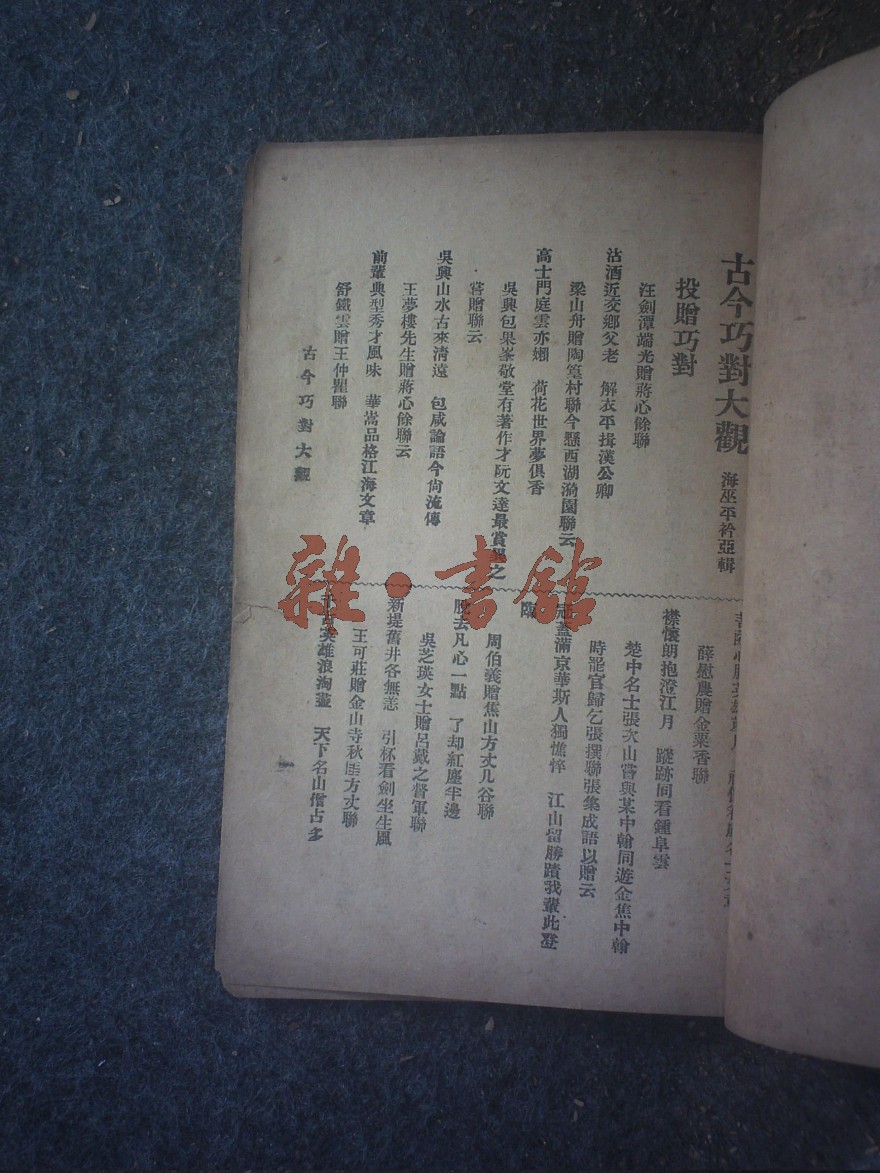 古今巧對大觀
海巫平衿亞輯
投贈巧對
汪劍潭端光贈蔣心餘聯
沽酒近交鄉父老　解衣平揖漢公卿
梁山舟贈陶篁村聯今懸西湖漪園聯云
高士門庭雲亦嬾　荷花世界夢俱香
吳興包果峯敬堂有著作才阮文達最賞之
嘗贈聯云
吳興山水古來清遠　包咸論語今尙流傳
王夢樓先生贈蔣心餘聯云
前輩典型秀才風味　華嵩品格江海文章
舒鐵雲贈王仲瞿聯
薛慰農贈金粟香聯
襟懷朗抱澄江月　蹤跡間看鍾阜雲
楚中名士張次山嘗與某中翰同遊金焦中翰
時罷官歸乞張撰聯張集成語以贈云
冠蓋滿京華斯人獨憔悴　江山留勝蹟我輩此登
臨
周伯義贈焦山方丈几谷聯
脫去凡心一點　了却紅塵半邊
吳芝瑛女士贈呂戴之督軍聯
新堤舊井各無恙　引杯看劍坐生風
王可莊贈金山寺秋厓方丈聯
千古英雄浪淘盡　天下名山僧占多
古今巧對大觀
一
雜·書館